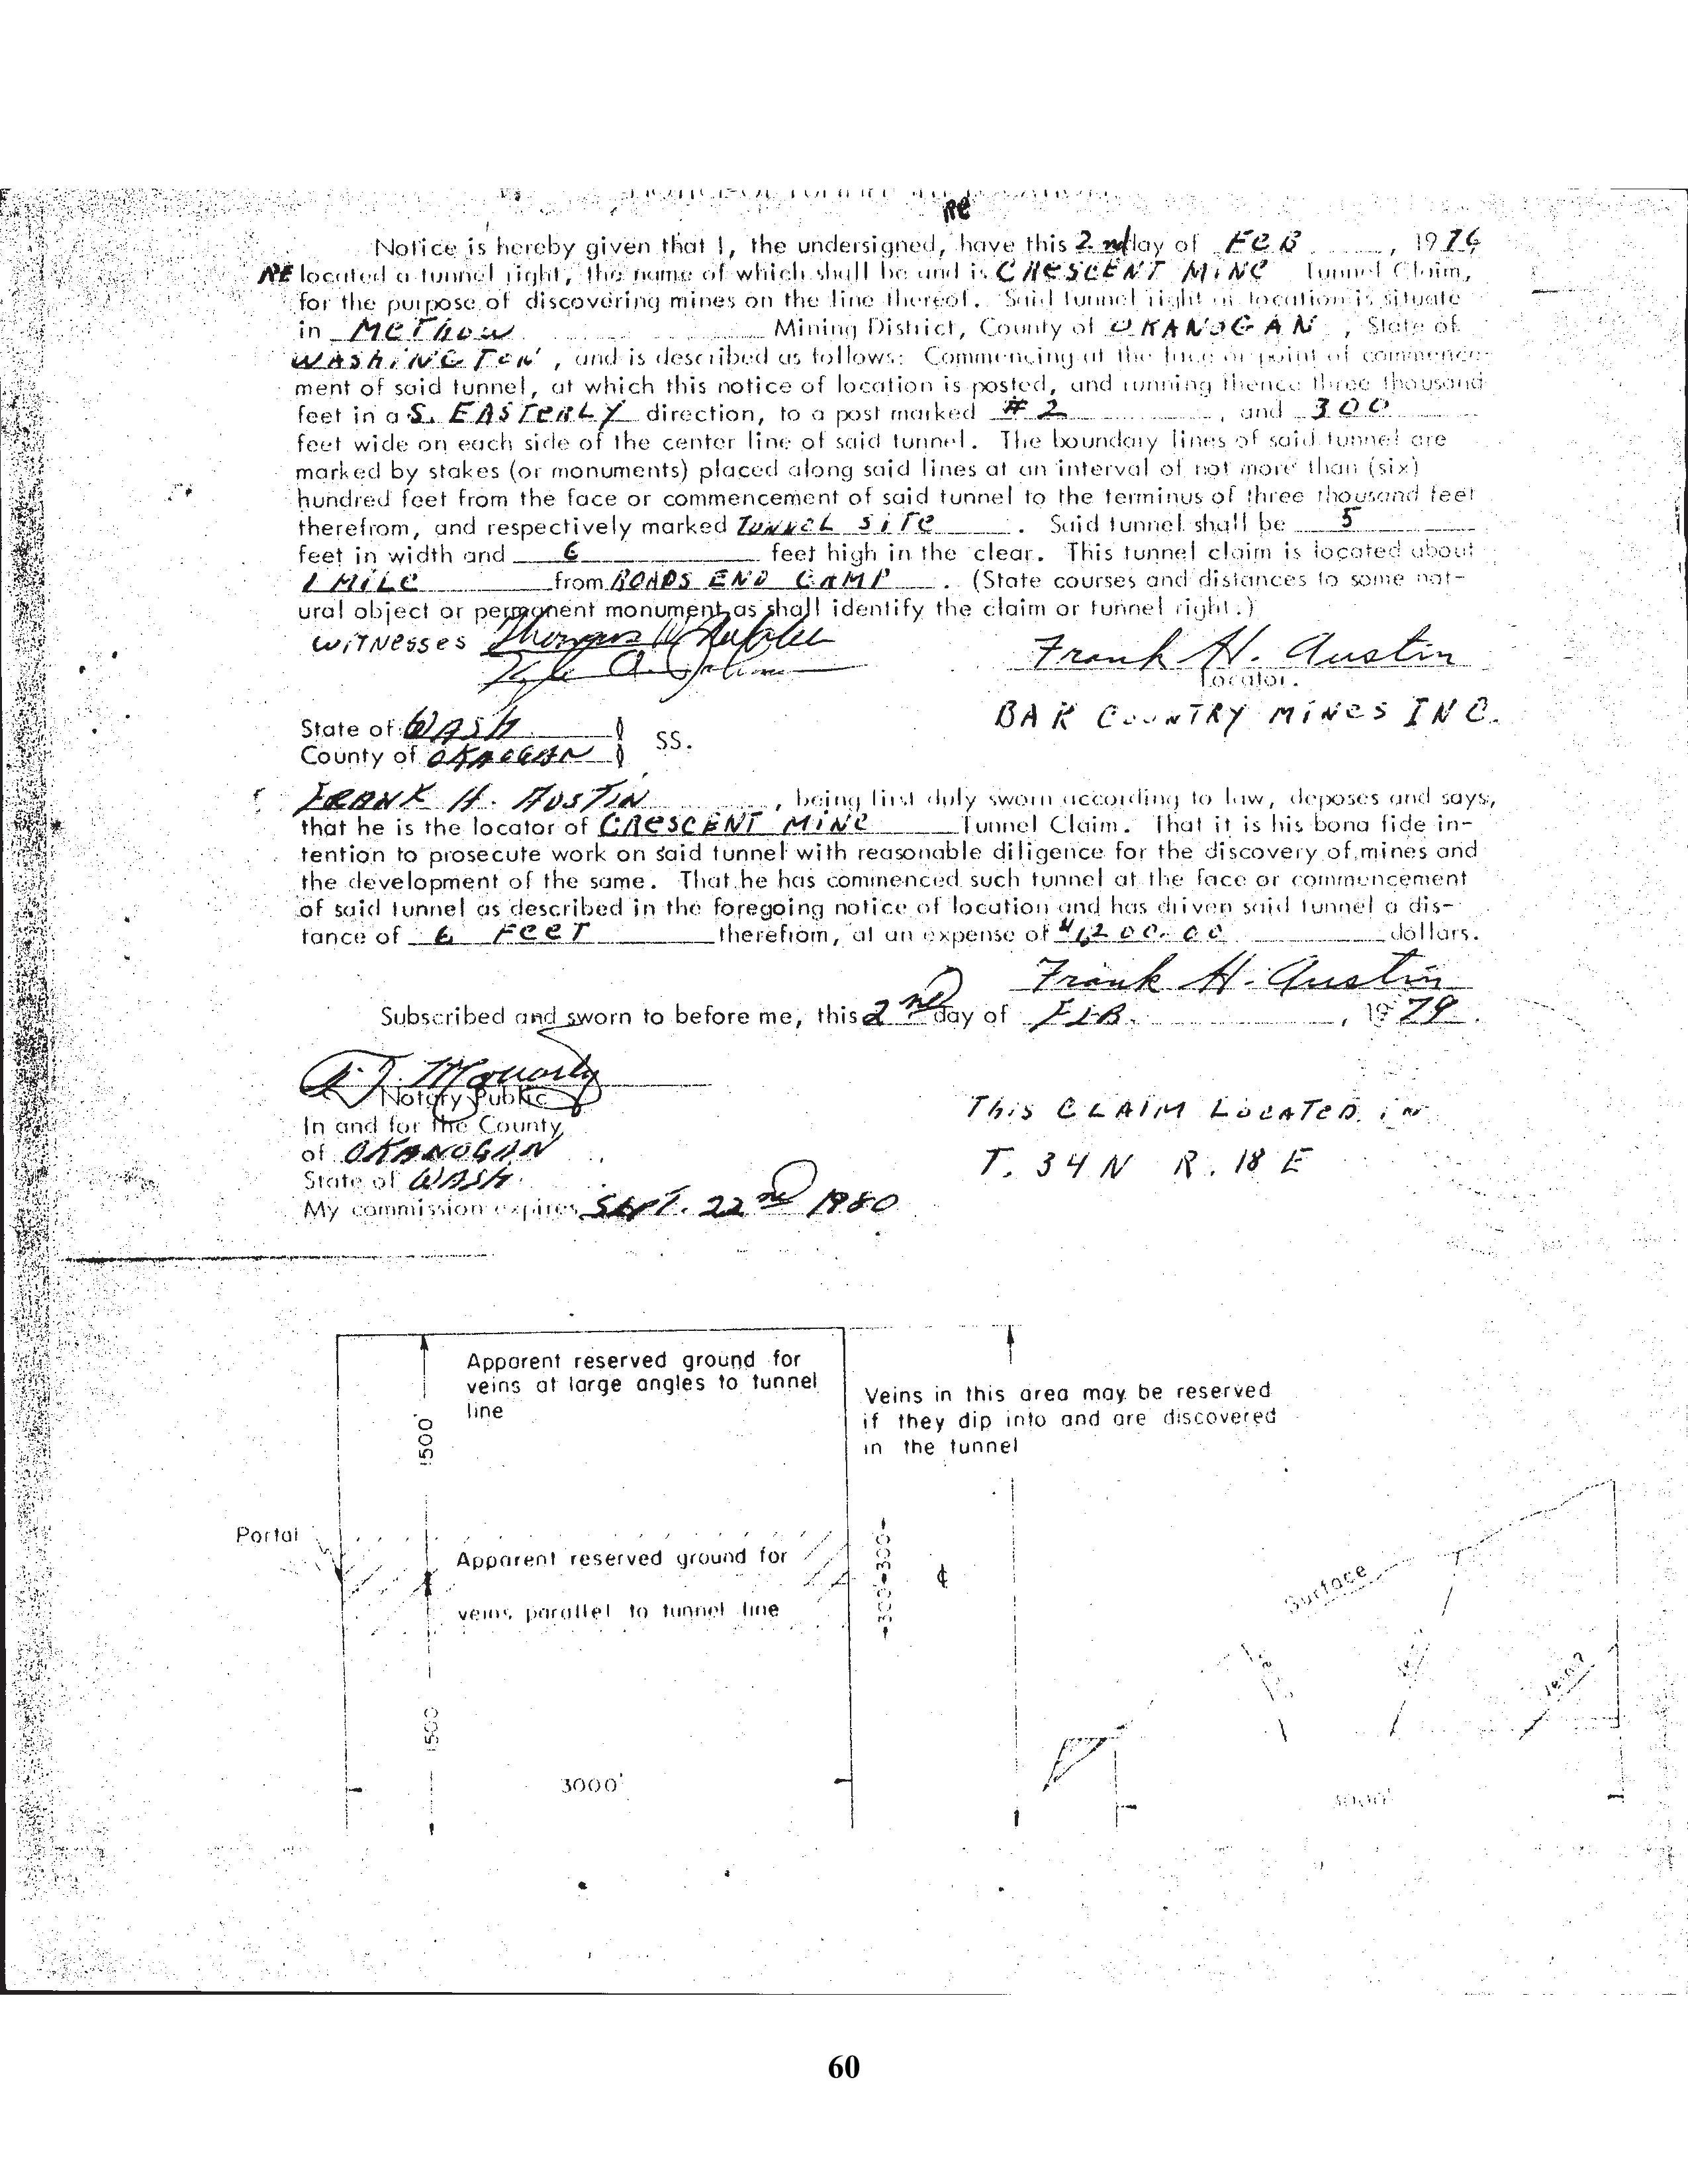 RE
Notice is hereby given that I, the undersigned, have this 2nd day of FEB , 19
RE located a tunnel right, the name of which shall be and is CRESCENT MINE Tunnel Claim,
for the purpose of discovering mines on the line thereof. Said tunnel right or location is situate
in METHOW Mining District, County of OKANOGAN , State of
WASHINGTON , and is described as follows: Commencing at the face or point of commence-
ment of said tunnel, at which this notice of location is posted, and running thence three thousand
feet in a S. EASTERLY direction, to a post marked #2 , and 300
feet wide on each side of the center line of said tunnel. The boundary lines of said tunnel are
marked by stakes (or monuments) placed along said lines at an interval of not more than (six)
hundred feet from the face or commencement of said tunnel to the terminus of three thousand feet
therefrom, and respectively marked TUNNEL SITE . Said tunnel shall be 5
feet in width and 6 feet high in the clear. This tunnel claim is located about
1 MILE from ROADS END CAMP . (State courses and distances to some nat-
ural object or permanent monument as shall identify the claim or tunnel right.)
WITNESSES Thomas
Frank H. Austin
Locator.
BAR COUNTRY MINES INC.
State of WASH
County of OKANOGAN SS.
FRANK H. AUSTIN , being first duly sworn according to law, deposes and says,
that he is the locator of CRESCENT MINE Tunnel Claim. That it is his bona fide in-
tention to prosecute work on said tunnel with reasonable diligence for the discovery of mines and
the development of the same. That he has commenced such tunnel at the face or commencement
of said tunnel as described in the foregoing notice of location and has driven said tunnel a dis-
tance of 6 FEET therefrom, at an expense of dollars.
Frank H. Austin
Subscribed and sworn to before me, this 2nd day of FEB. , 1979.
Notary Public
In and for the County
of OKANOGAN
State of WASH.
My commission expires SEPT. 22nd 1980
THIS CLAIM LOCATED IN
T. 34 N R. 18 E
Apparent reserved ground for
veins at large angles to tunnel
line
Veins in this area may be reserved
if they dip into and are discovered
in the tunnel
1500'
Portal
Apparent reserved ground for
veins parallel to tunnel line
300 300
℄
Surface
Vein?
1500
3000'
3000'
60